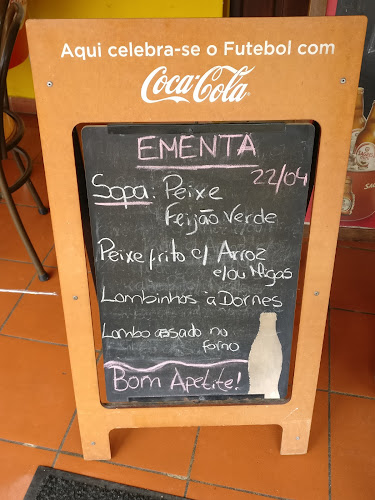 Aqui celebra-se o Futebol com
Coca-Cola
EMENTA
22/04
Sopa: Peixe
Feijão Verde
Peixe frito c/ Arroz
e/ou Migas
Lombinhos à Dornes
Lombo assado no
forno
Bom Apetite!